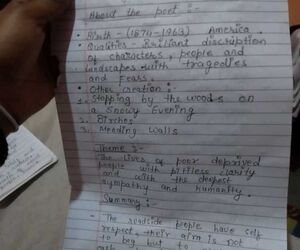 About the poet :-
• Birth - (1874-1963) America.
• Qualities - Brilliant discription
of characters, people and
landscapes with tragedies
and fears.
• Other creation :
1. Stopping by the woods on
a Snowy Evening
2. Birches
3. Mending Walls
Theme :-
The lives of poor deprived
people with pittiless clarity
and with the deepest
sympathy and humanity.
Summary :-
- The roadside people have self
respect, their aim is not
to beg but to